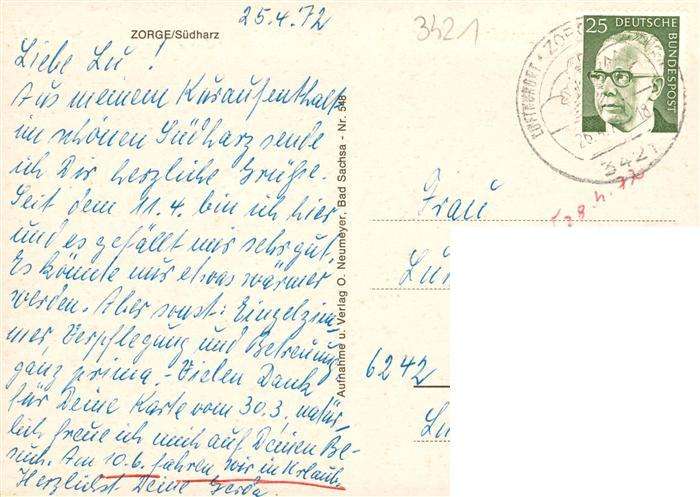 25.4.72
ZORGE/Südharz
Liebe Lu!
Aus meinem Kuraufenthalt
im schönen Südharz sende
ich Dir herzliche Grüße.
Seit dem 11.4. bin ich hier
und es gefällt mir sehr gut,
Es könnte nur etwas wärmer
werden. Aber sonst: Einzelzim-
mer, Verpflegung und Betreuung
ganz prima. - Vielen Dank
für Deine Karte vom 30.3. natür-
lich freue ich mich auf Deinen Be-
such. Am 10.6. fahren wir in Urlaub.
Herzlichst Deine Gerda.
Aufnahme u. Verlag O. Neumeyer, Bad Sachsa - Nr. 548
3421
25 DEUTSCHE BUNDESPOST
LUFTKURORT
3421
Frau
6242